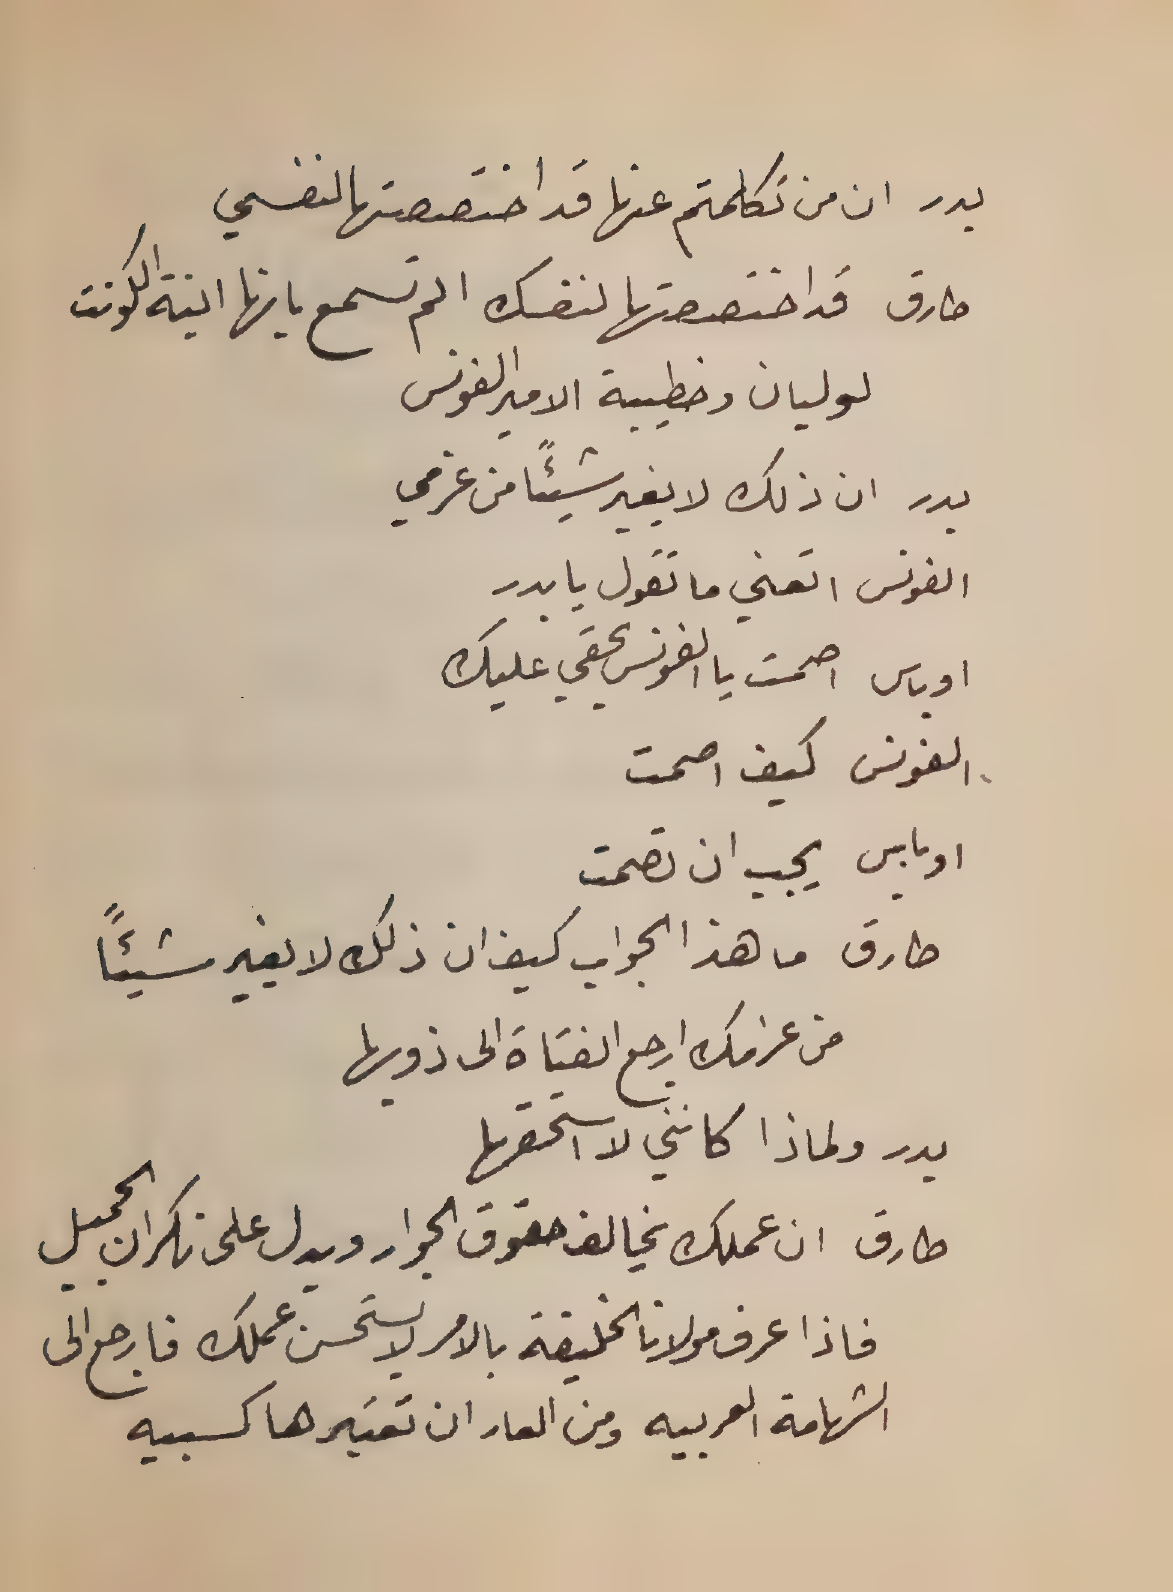 بدر ان من تكلمتم عنها قد اختصصتها لنفسي
طارق قد اختصصتها لنفسك الم تسمع بانها ابنة الكونت
لوليان وخطيبة الامير الفونس
بدر ان ذلك لا يغير شيئًا من عزمي
الفونس اتعني ما تقول يا بدر
اوباس اصمت يا الفونس بحقي عليك
الفونس كيف اصمت
اوباس يجب ان تصمت
طارق ما هذا الجواب كيف ان ذلك لا يغير شيئًا
من عزمك ارجع الفتاة الى ذويها
بدر ولماذا كانني لا استحقها
طارق ان عملك يخالف حقوق الجوار ويدل على نكران الجميل
فاذا عرف مولانا الخليفة بالامر لا يستحسن عملك فارجع الى
الشهامة العربيه ومن العار ان تعتبرها كسبيه